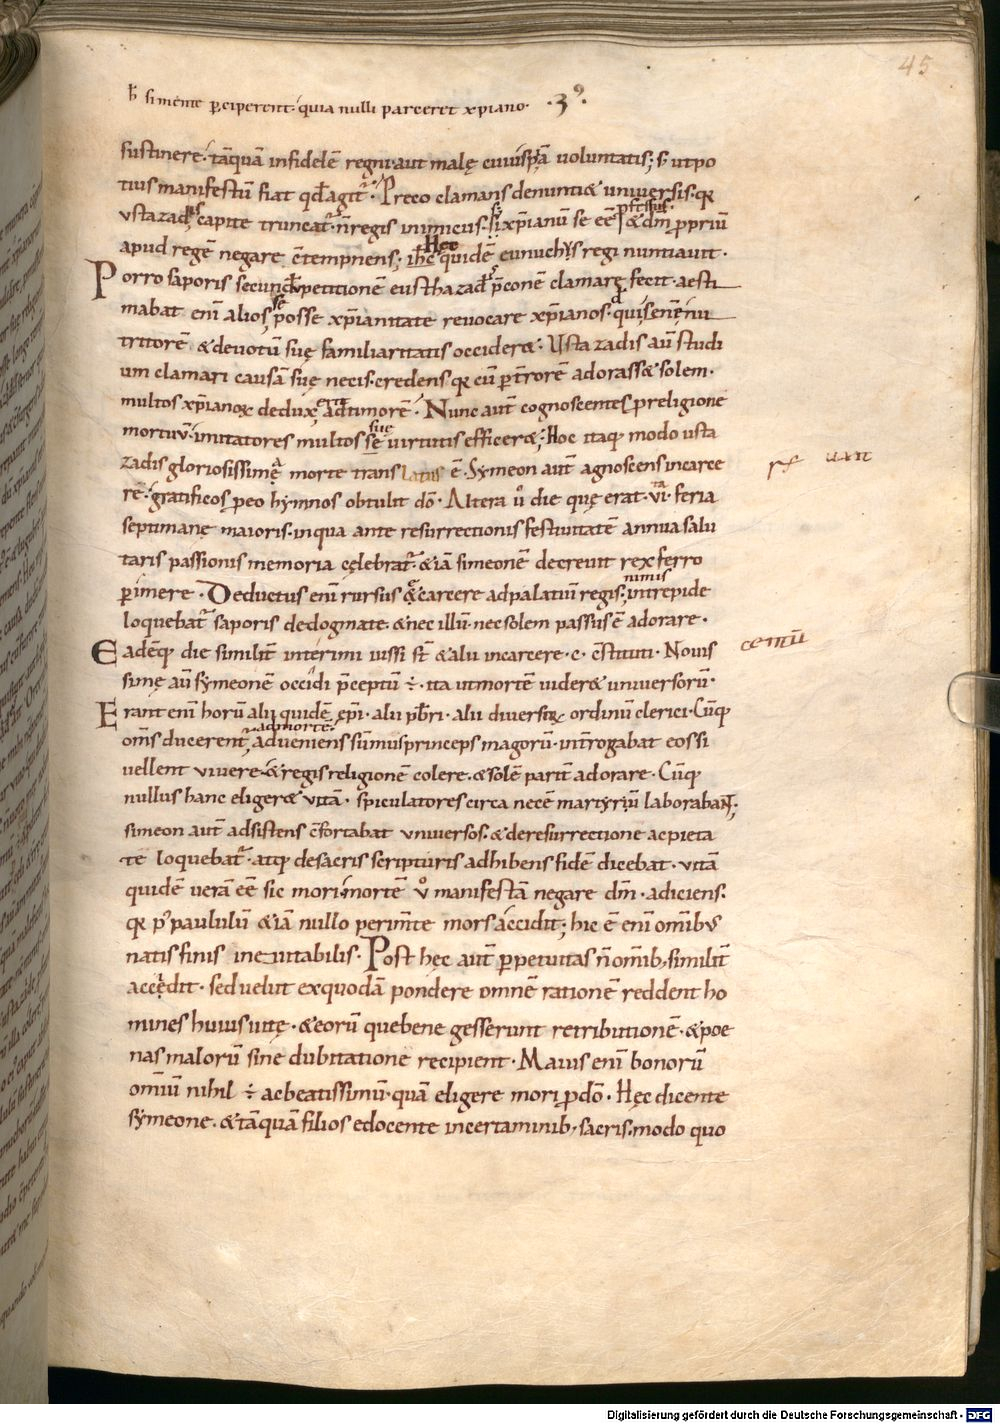 45
h simente p̱ciperent· quia nulli parceret xpiano· ·3⁹·
sustinere· tāquā infidelē regni· aut malę cuiuspiā voluntatis; s; utpo
tius manifestū fiat qđ agit᷑· Preco clamans denunti& universis· qꝛ
vstazades capite truncat᷑· n̄ regis inimicus· s; xp̄ianū se eē p̄fessus· & dm̄ p̱priū
apud regē negare c̄tempnens; Hęc quidē eunuchus regi nuntiavit·
Porro saporis secundū petitionē eusthazadis p̄conē clamare fecit· aesti
mabat enī alios se posse xp̄ianitate revocare xp̄ianos· qd senē nu
tritorē & devotū suę familiaritatis occider&· Ustazadis aū studi
um clamari causā suę necis· credens qꝛ cū p̱ t̄rorē adorass& solem·
multos xp̄ianoꝝ deduxerit ad timorē· Nunc aut̄ cognoscentes p̱ religione
mortuū· imitatores multos suę virtutis efficer&; Hoc itaqꝫ modo usta
zadis gloriosissima morte translatus ē· Symeon aut̄ agnoscens in carce
re· gratificos p̱ eo hymnos obtulit dō· Altera ů die quę erat· vi· feria
septimanę maioris· in qua ante resurrectionis festivitatē annua salu
taris passionis memoria cęlebrat᷑· & iā simeonē decrevit rex ferro
p̱imere· Deductus enī rursus e carcere ad palatiū regis; nimis intrepide
loquebat᷑ saporis de dogmate· & nec illū· nec solem passus ē adorare·
Eadēqꝫ die similit̄ interimi iussi st̄ & alii in carcere· c· c̄stituti· Novis
simę aū symeonē occidi p̄ceptū ÷· ita ut mortē vider& universorū·
Erant enī horū alii quidē ępi· alii p̄bri· alii diversoꝝ ordinū clerici· Cūqꝫ
om̄s ducerent᷑ ad mortē· adveniens sūmus princeps magorū· int̄rogabat eos si
vellent vivere· & regis religionē colere· & solē parit̄ adorare· Cūqꝫ
nullus hanc eliger& vitā· spiculatores circa necē martyrū laborabant;
simeon aut̄ adsistens c̄fortabat universos· & de resurrectione ac pieta
te loquebat᷑· atqꝫ de sacris scripturis adhibens fidē dicebat· vitā
quidē verā eē sic mori· mortē ů manifestā negare dm̄· adiciens·
qꝛ p⁹ paululū & iā nullo perim̄te mors accidit; hic ē enī omībus
natis finis inevitabilis· Post hęc aut̄ p̱petuitas n̄ omībꝫ similit̄
accidit· sed velut ex quodā pondere omnē rationē reddent ho
mines huius vitę· & eorū que bene gesserunt retributionē· & poe
nas malorū sine dubitatione recipient· Maius enī bonorū
omiū nihil ÷ ac beatissimū· quā eligere mori p̱ dō· Hęc dicente
symeone· & tāquā filios edocente in certaminibꝫ sacris· modo quo
centū
Digitalisierung gefördert durch die Deutsche Forschungsgemeinschaft · DFG